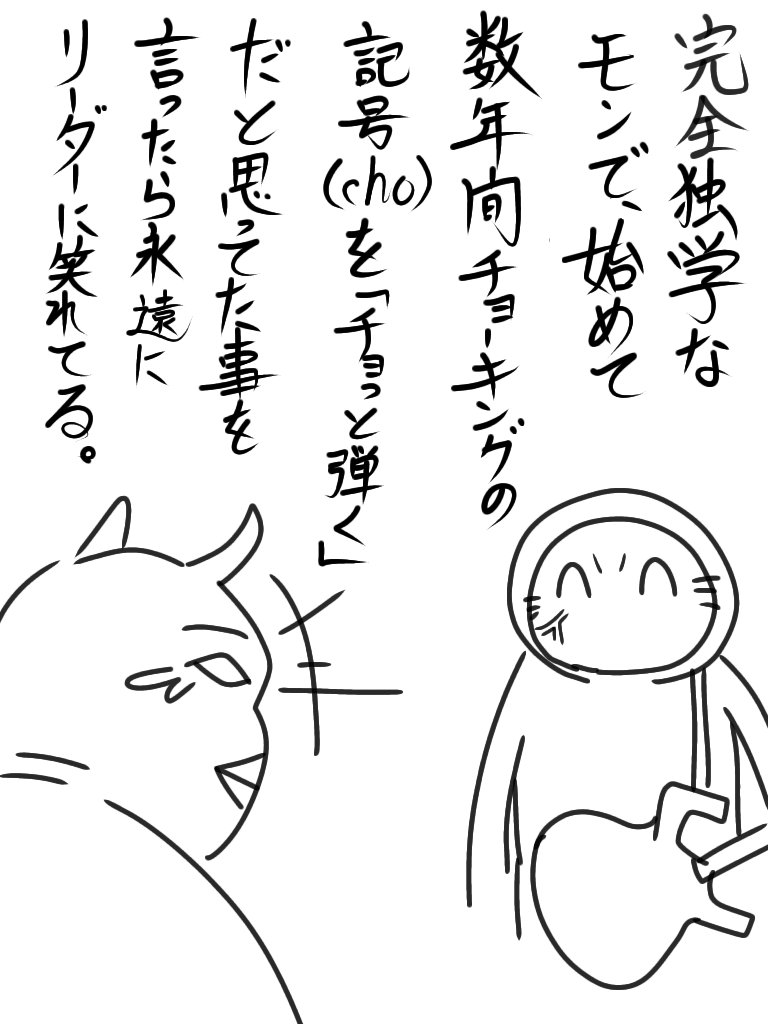 完全独学な
モンで、始めて
数年間チョーキングの
記号(cho)を「チョっと弾く」
だと思ってた事を
言ったら永遠に
リーダーに笑れてる。